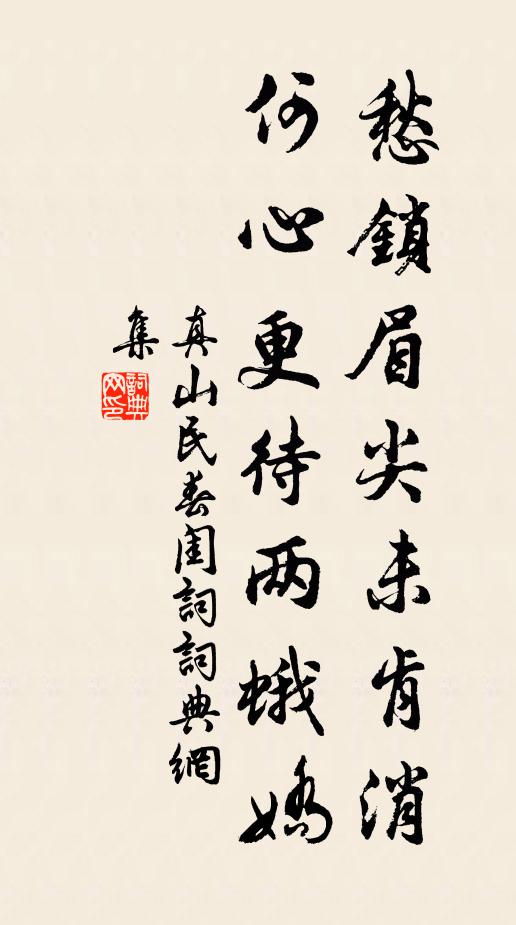 愁鎖眉尖未肯消
何心更待两蛾嬌
真山民春闺詞詞典網
集
詞典
网印